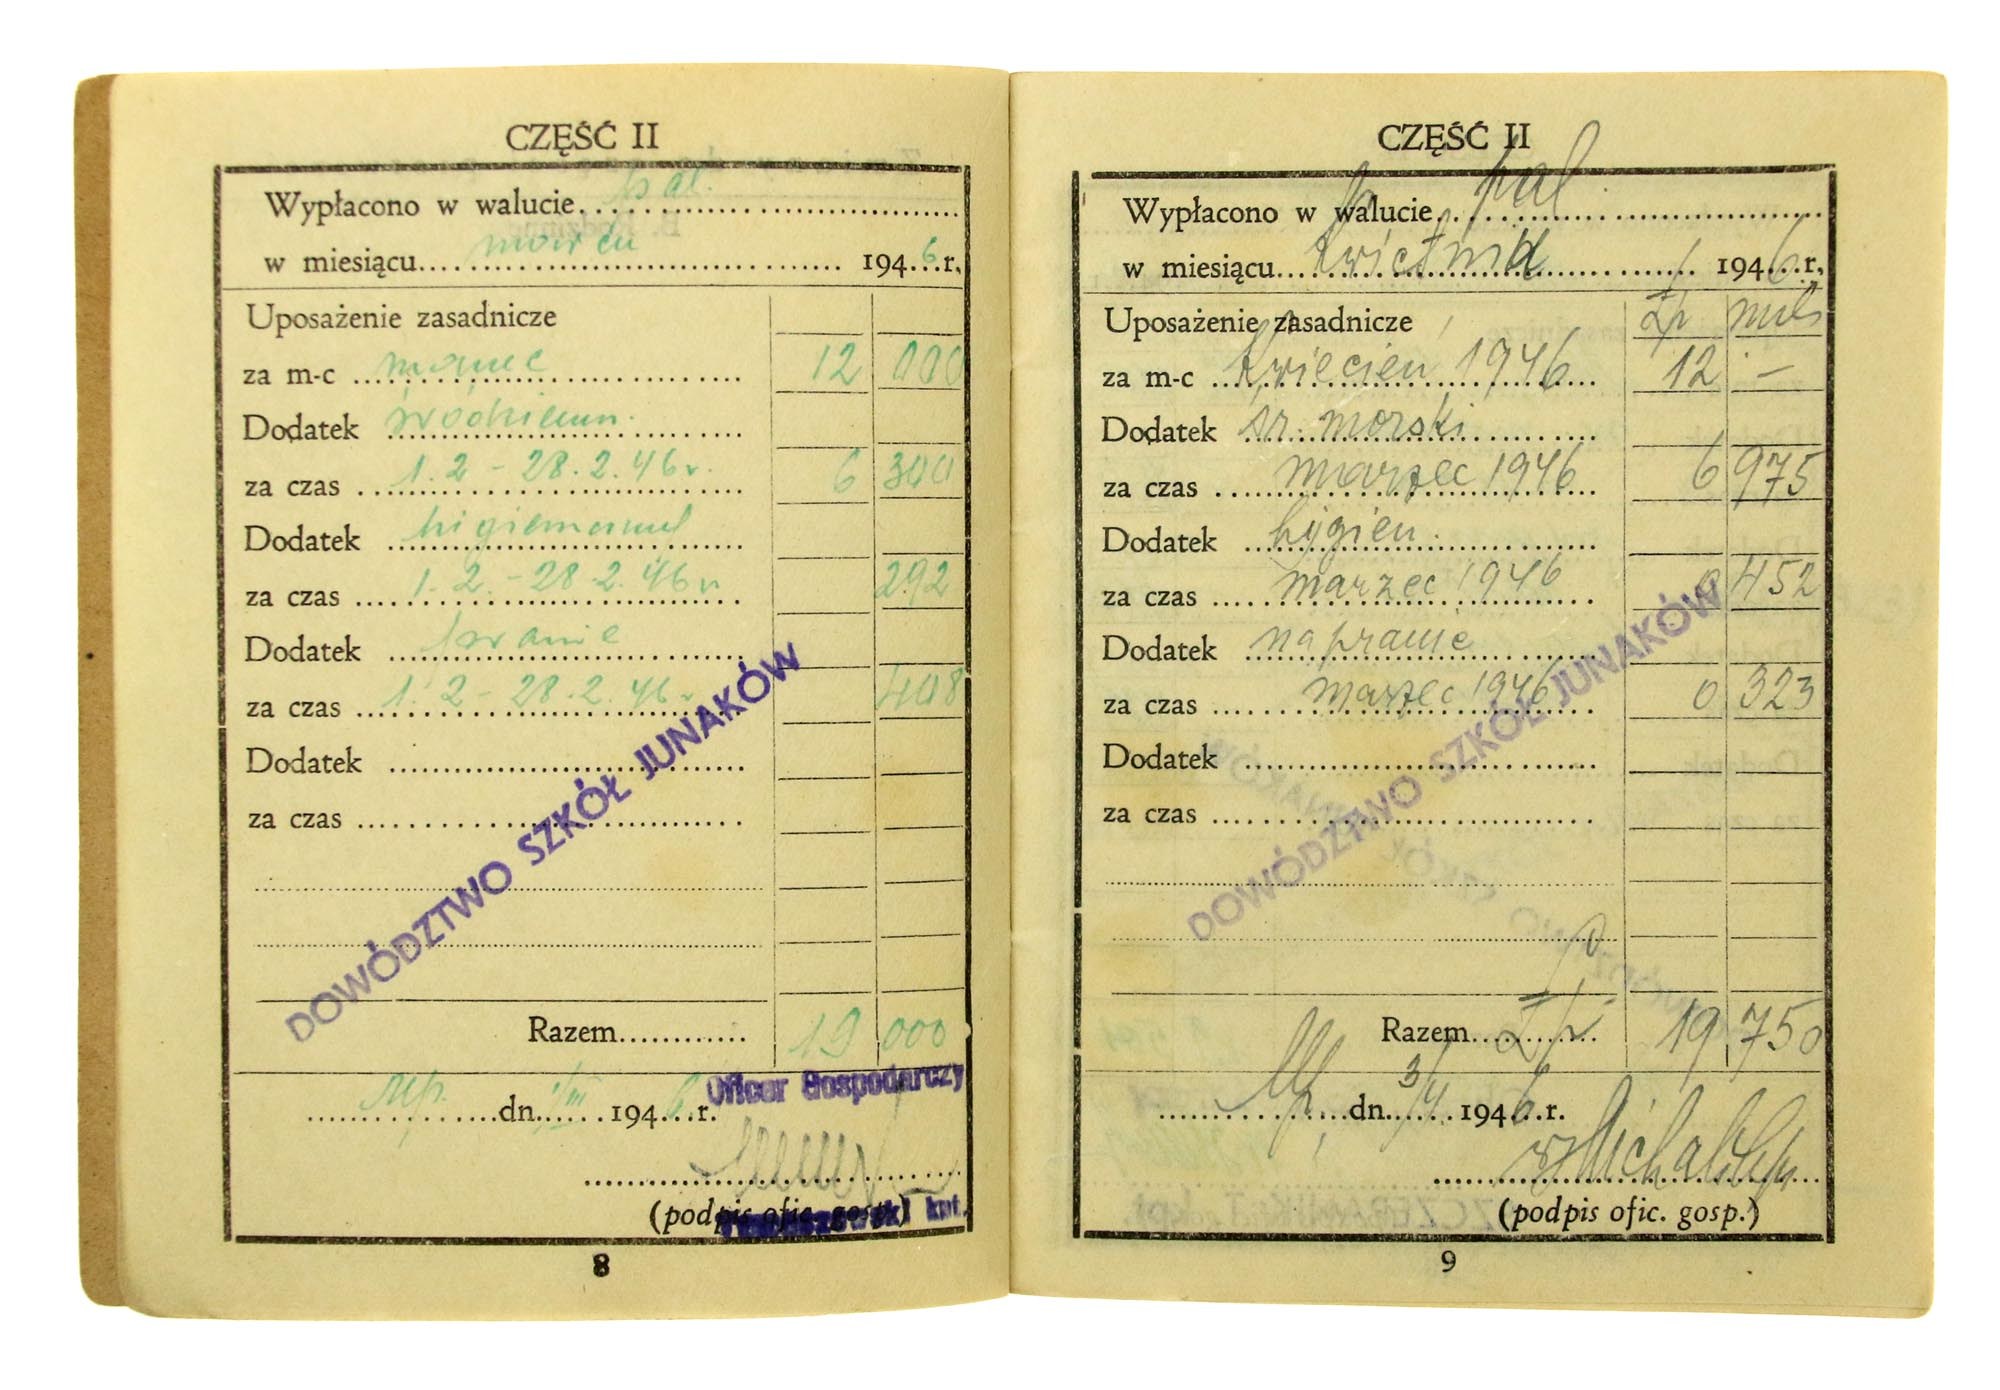 CZĘŚĆ II
Wypłacono w walucie pal.
w miesiącu marcu 1946 r.
Uposażenie zasadnicze
za m-c marzec 12 000
Dodatek środkiem.
za czas 1.2 - 28.2.46 r. 6 300
Dodatek
za czas 1.2.-28.2.46 r 292
Dodatek pranie
za czas 1.2-28.2.46 r 408
Dodatek
za czas
Razem 19 000
mp. dn. 1/III 1946 r.
Oficer Gospodarczy
(podpis ofic. gosp.)
kpt.
DOWÓDZTWO SZKÓŁ JUNAKÓW
8
CZĘŚĆ II
Wypłacono w walucie pal.
w miesiącu kwietniu 1946 r.
Uposażenie zasadnicze £p mils
za m-c kwiecień 1946 12 -
Dodatek śr. morski
za czas marzec 1946 6 975
Dodatek higien.
za czas marzec 1946 0 452
Dodatek naprawę
za czas marzec 1946 0 323
Dodatek
za czas
Razem £p 19 750
Mp. dn. 3/4 1946 r.
(podpis ofic. gosp.)
DOWÓDZTWO SZKÓŁ JUNAKÓW
9